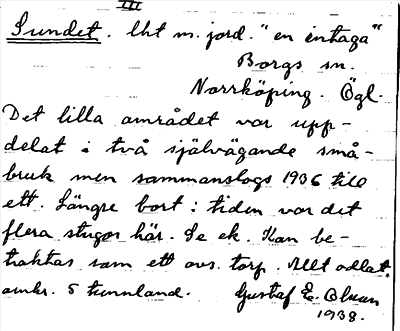 III
Sundet. Lht m. jord. "en intaga"
Borgs sn.
Norrköping. Ögl.
Det lilla området var upp-
delat i två självägande små-
bruk men sammanslogs 1936 till
ett. Längre bort i tiden var det
flera stugor här. Se ek. Kan be-
traktas som ett avs. torp. Allt odlat.
omkr. 5 tunnland. Gustaf E. Olsson
1938.